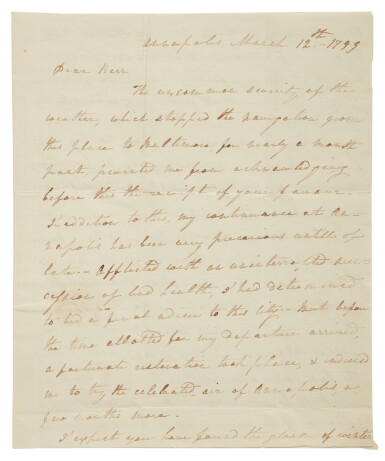 Annapolis March 12th - 1799
Dear Kerr
The uncommon severity of the
weather, which stopped the navigation from
this place to Baltimore for nearly a month
past, prevented me from acknowledging
before this the receipt of your favour.
In addition to this, my continuance at An-
napolis has been very precarious untill of
late. - Afflicted with an uninterrupted suc-
cession of bad health, I had determined
to bid a final adieu to this city - But before
the time allotted for my departure arrived,
a fortunate restoration took place, & induced
me to try the celebrated air of Annapolis, a
few months more.
I expect you have found the of winter